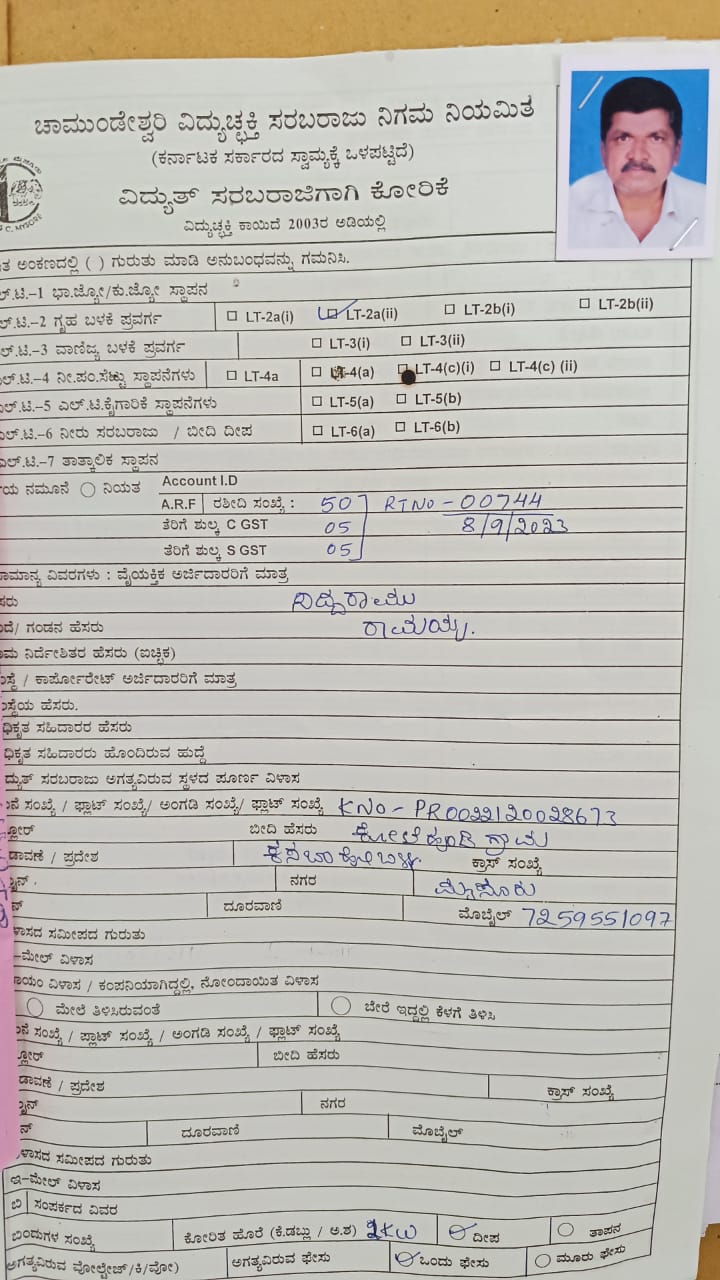 ಚಾಮುಂಡೇಶ್ವರಿ ವಿದ್ಯುಚ್ಛಕ್ತಿ ಸರಬರಾಜು ನಿಗಮ ನಿಯಮಿತ
(ಕರ್ನಾಟಕ ಸರ್ಕಾರದ ಸ್ವಾಮ್ಯಕ್ಕೆ ಒಳಪಟ್ಟಿದೆ)
ವಿದ್ಯುತ್ ಸರಬರಾಜಿಗಾಗಿ ಕೋರಿಕೆ
ವಿದ್ಯುಚ್ಛಕ್ತಿ ಕಾಯಿದೆ 2003ರ ಅಡಿಯಲ್ಲಿ
C. MYSORE
ಅಂಕಣದಲ್ಲಿ ( ) ಗುರುತು ಮಾಡಿ ಅನುಬಂಧವನ್ನು ಗಮನಿಸಿ.
ಲ್.ಟಿ.–1 ಭಾ.ಜ್ಯೋ/ಕು.ಜ್ಯೋ ಸ್ಥಾಪನ
ಲ್.ಟಿ.–2 ಗೃಹ ಬಳಕೆ ಪ್ರವರ್ಗ LT-2a(i) LT-2a(ii) LT-2b(i) LT-2b(ii)
ಲ್.ಟಿ.–3 ವಾಣಿಜ್ಯ ಬಳಕೆ ಪ್ರವರ್ಗ LT-3(i) LT-3(ii)
ಲ್.ಟಿ.–4 ನೀ.ಪಂ.ಸೆಟ್ಟು ಸ್ಥಾಪನೆಗಳು LT-4a LT-4(a) LT-4(c)(i) LT-4(c) (ii)
ಲ್.ಟಿ.–5 ಎಲ್.ಟಿ.ಕೈಗಾರಿಕೆ ಸ್ಥಾಪನೆಗಳು LT-5(a) LT-5(b)
ಎಲ್.ಟಿ.–6 ನೀರು ಸರಬರಾಜು / ಬೀದಿ ದೀಪ LT-6(a) LT-6(b)
ಎಲ್.ಟಿ.–7 ತಾತ್ಕಾಲಿಕ ಸ್ಥಾಪನ
ಯ ನಮೂನೆ ನಿಯತ Account I.D
A.R.F ರಶೀದಿ ಸಂಖ್ಯೆ : 50 RTNO – 00744
ತೆರಿಗೆ ಶುಲ್ಕ C GST 05 8/9/2023
ತೆರಿಗೆ ಶುಲ್ಕ S GST 05
ಾಮಾನ್ಯ ವಿವರಗಳು : ವೈಯಕ್ತಿಕ ಅರ್ಜಿದಾರರಿಗೆ ಮಾತ್ರ
ಸರು
ದೆ/ ಗಂಡನ ಹೆಸರು ರಾಮಯ್ಯ.
ಾಮ ನಿರ್ದೇಶಿತರ ಹೆಸರು (ಐಚ್ಛಿಕ)
ಸ್ಥೆ / ಕಾರ್ಪೋರೇಟ್ ಅರ್ಜಿದಾರರಿಗೆ ಮಾತ್ರ
ಸ್ಥೆಯ ಹೆಸರು.
ಧಿಕೃತ ಸಹಿದಾರರ ಹೆಸರು
ಧಿಕೃತ ಸಹಿದಾರರು ಹೊಂದಿರುವ ಹುದ್ದೆ
ದ್ಯುತ್ ಸರಬರಾಜು ಅಗತ್ಯವಿರುವ ಸ್ಥಳದ ಪೂರ್ಣ ವಿಳಾಸ
ನೆ ಸಂಖ್ಯೆ / ಫ್ಲಾಟ್ ಸಂಖ್ಯೆ/ ಅಂಗಡಿ ಸಂಖ್ಯೆ/ ಫ್ಲಾಟ್ ಸಂಖ್ಯೆ KNO – PR0022120028673
ಲೋರ್ ಬೀದಿ ಹೆಸರು ಕೋಟೆಹುಂಡಿ ಗ್ರಾಮ
ಡಾವಣೆ / ಪ್ರದೇಶ ಕಸಬಾ ಹೋಬಳಿ. ಕ್ರಾಸ್ ಸಂಖ್ಯೆ
ೈನ್. ನಗರ ಮೈಸೂರು
ನ್ ದೂರವಾಣಿ ಮೊಬೈಲ್ 7259551097
ಳಾಸದ ಸಮೀಪದ ಗುರುತು
–ಮೇಲ್ ವಿಳಾಸ
ಾಯಂ ವಿಳಾಸ / ಕಂಪನಿಯಾಗಿದ್ದಲ್ಲಿ, ನೋಂದಾಯಿತ ವಿಳಾಸ
ಮೇಲೆ ತಿಳಿಸಿರುವಂತೆ ಬೇರೆ ಇದ್ದಲ್ಲಿ ಕೆಳಗೆ ತಿಳಿಸಿ
ನೆ ಸಂಖ್ಯೆ / ಪ್ಲಾಟ್ ಸಂಖ್ಯೆ / ಅಂಗಡಿ ಸಂಖ್ಯೆ / ಫ್ಲಾಟ್ ಸಂಖ್ಯೆ
ಲೋರ್ ಬೀದಿ ಹೆಸರು
ಡಾವಣೆ / ಪ್ರದೇಶ ಕ್ರಾಸ್ ಸಂಖ್ಯೆ
ೈನ್ ನಗರ
ನ್ ದೂರವಾಣಿ ಮೊಬೈಲ್
ಳಾಸದ ಸಮೀಪದ ಗುರುತು
ಇ–ಮೇಲ್ ವಿಳಾಸ
ಬಿ ಸಂಪರ್ಕದ ವಿವರ
ಬಿಂದುಗಳ ಸಂಖ್ಯೆ ಕೋರಿತ ಹೊರೆ (ಕೆ.ಡಬ್ಲು / ಅ.ಶ) 2KW ದೀಪ ತಾಪನ
ಅಗತ್ಯವಿರುವ ವೋಲ್ಟೇಜ್/ಕಿ/ವೋ) ಅಗತ್ಯವಿರುವ ಫೇಸು ಒಂದು ಫೇಸು ಮೂರು ಫೇಸು